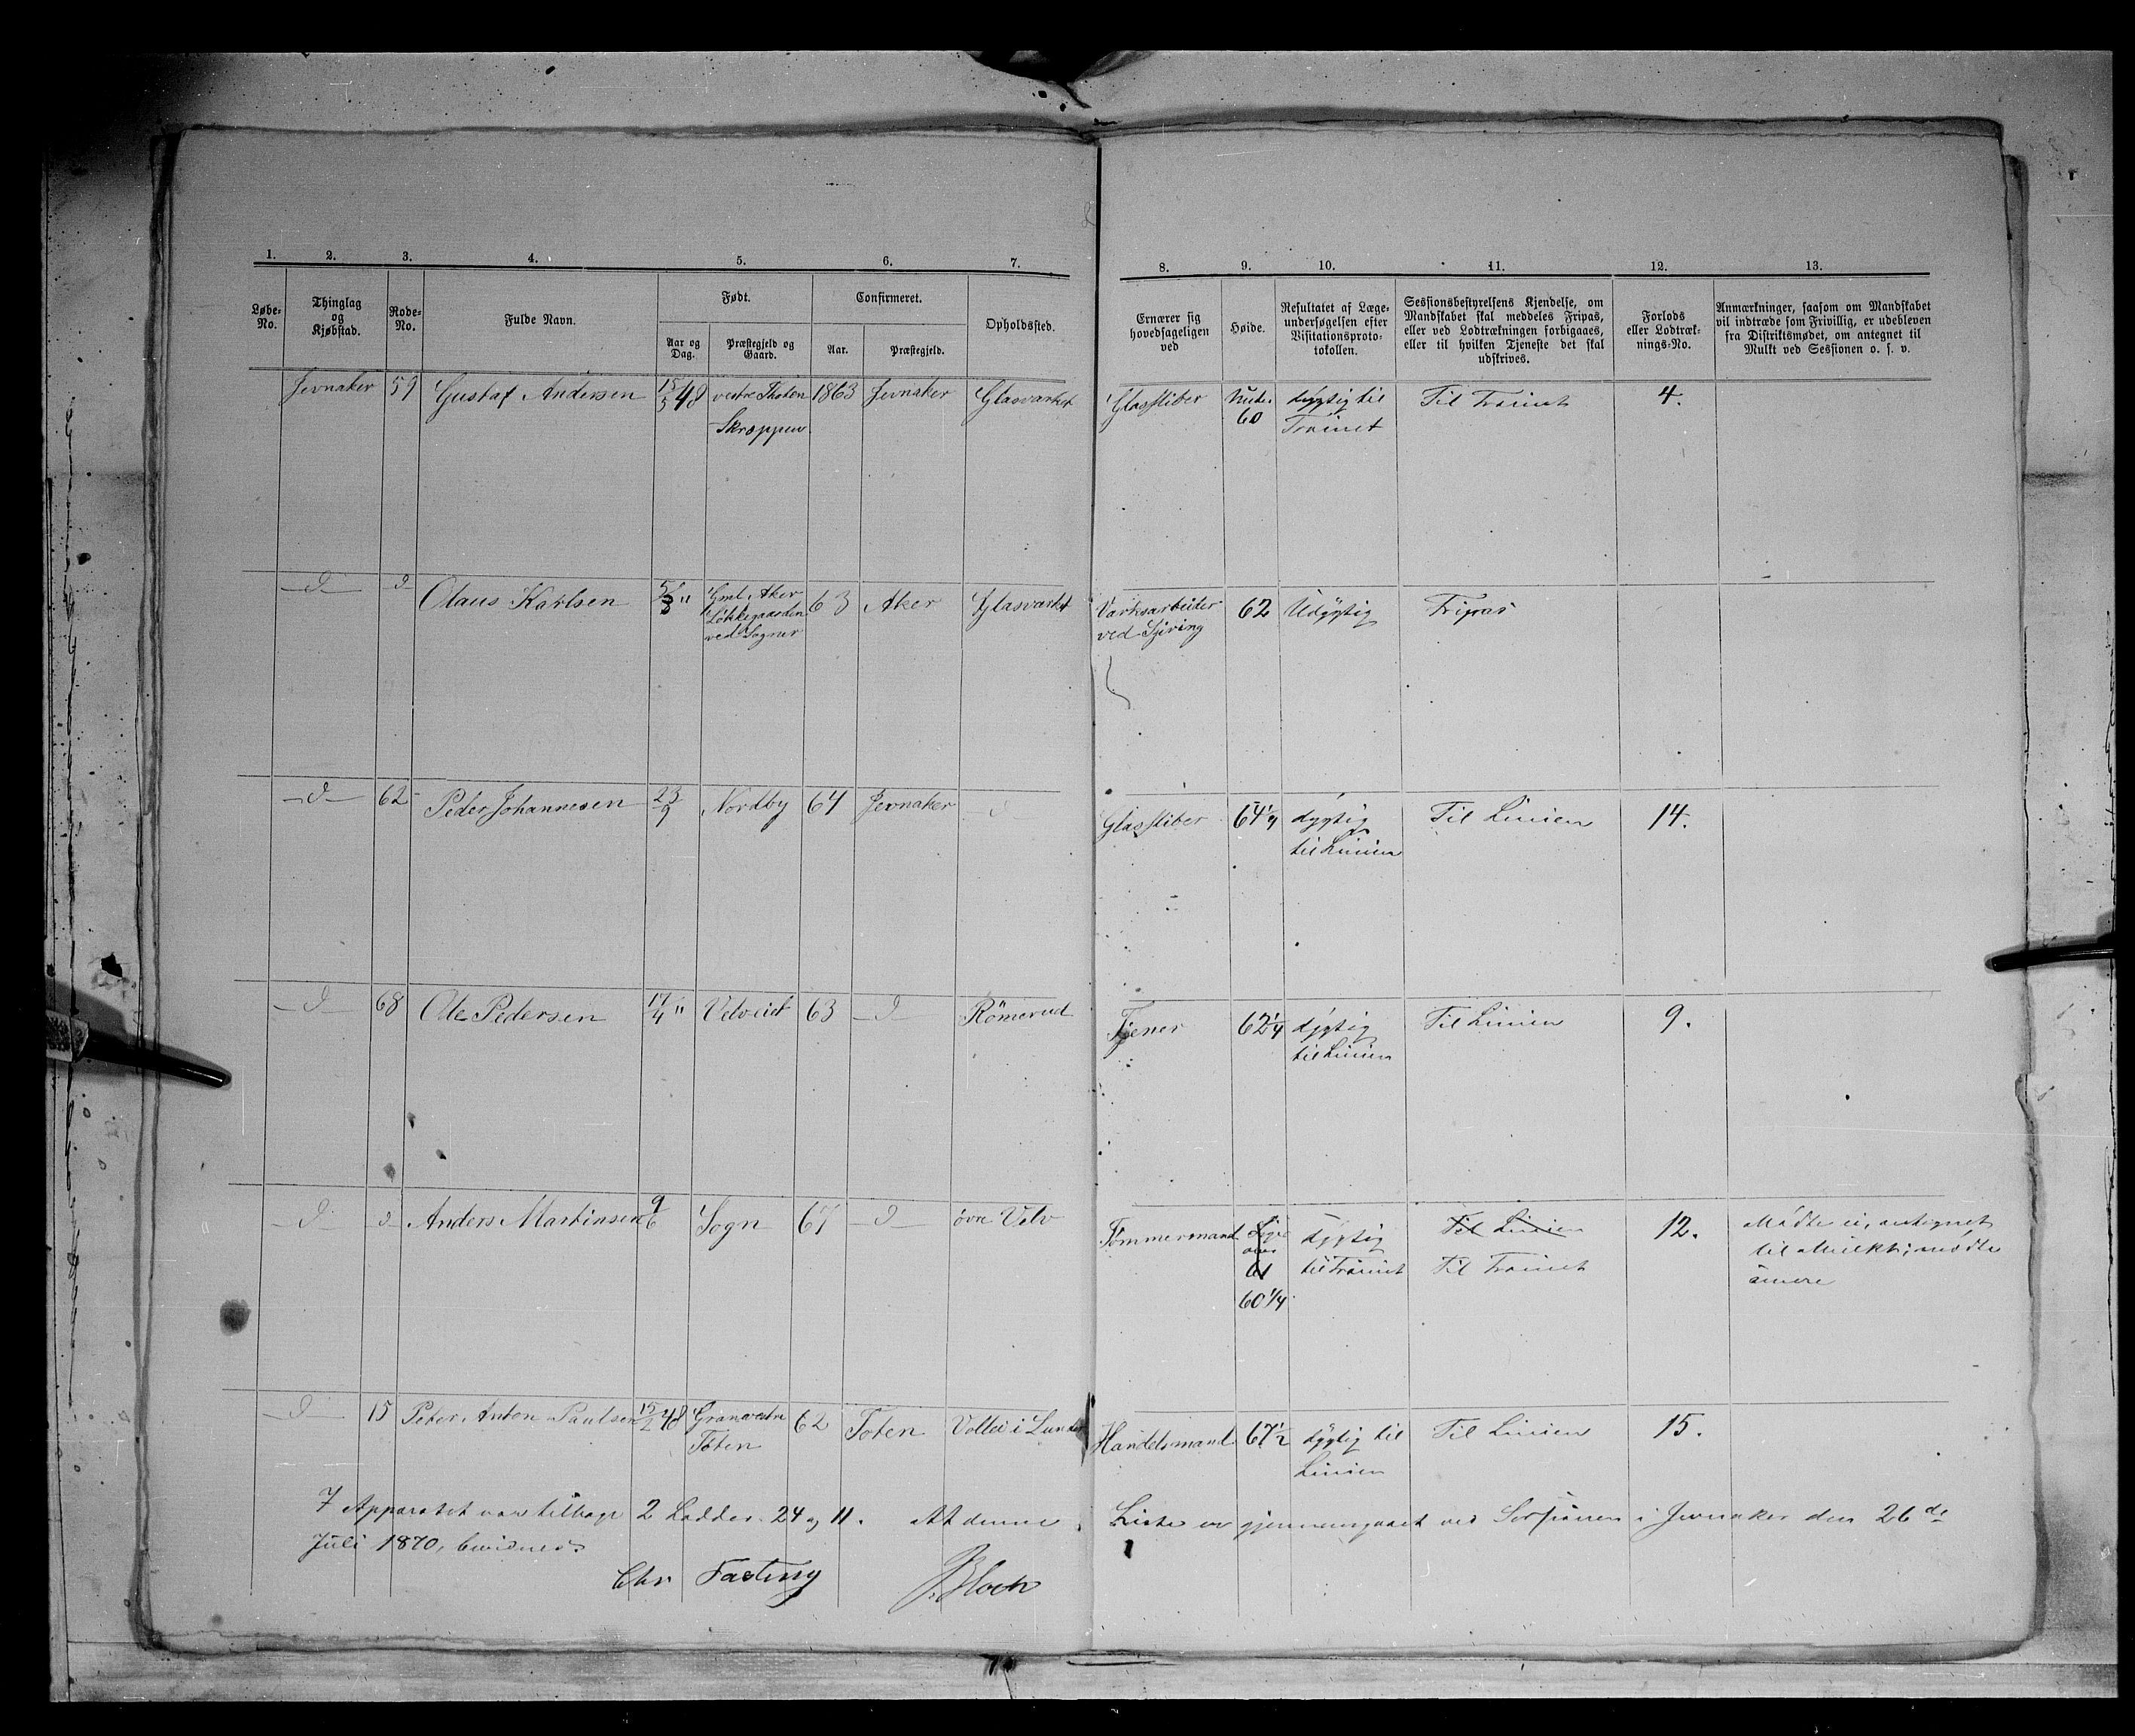 1. 2. 3. 4. 5. 6. 7. 8. 9. 10. 11. 12. 13.
Løbe-No. Thinglag og Kjøbstad. Rode-No. Fulde Navn. Født. Aar og Dag. Præstegjeld og Gaard. Confirmeret. Aar. Præstegjeld. Opholdssted.
Ernærer sig hovedsageligen ved Høide. Resultatet af Læge-undersøgelsen efter Visitationsproto-tokollen. Sessionsbestyrelsens Kjendelse, om Mandskabet skal meddeles Fripas, eller ved Lodtrækningen forbigaaes, eller til hvilken Tjeneste det skal udskrives. Forlods eller Lodtræk-nings-No. Anmærkninger, saasom om Mandskabet vil indtræde som Frivillig, er udebleven fra Distriktsmødet, om antegnet til Mulkt ved Sessionen o. s. v.
Jevnaker 59 Gustaf Andersen 15/5 48 vestre Thoten 1863 Jevnaker Glasværket Glassliber Under dygtig til Til Trainet 4.
Skroppen 60 Trainet
-d- d Olaus Karlsen 5/3 " Gml. Aker 63 Aker Glasværket Værksarbeider 62 Udygtig Fripas
Løkkegaarden ved
ved Sogner
-d- 62 Peder Johannesen 23/9 Nordby 64 Jevnaker -d- Glassliber 64 1/4 dygtig Til Linien 14.
til Linien
-d- 68 Ole Pedersen 17/4 " Velveiet 63 -d- Römerud Tjener 62 1/4 dygtig Til Linien 9.
til Linien
-d- d Anders Martinsen 9/6 Sogn 67 -d- övre Velo Tømmermand dygtig Til Linien 12. Mødte ei, antegnet
over til Trainet Til Trainet til Mulkt; mødte
61 senere
60 1/4
-d- 15 Peter Anton Paulsen 15/2 48 Gran vestre 62 Toten Vollei i Lunder Handelsmand 67 1/2 dygtig til Til Linien 15.
Toten Linien
I Apparatet var tilbage 2 Lodder. 24 og 11. At denne Liste er gjennemgaaet ved Sessionen i Jevnaker den 26de
Juli 1870, bevidnes.
Chr Fasting Bloch